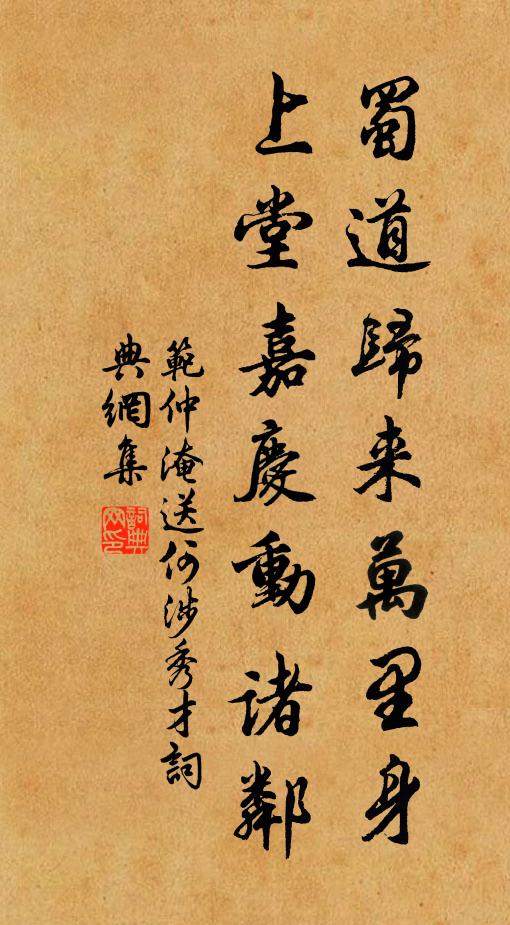 蜀道歸来萬里身
上堂嘉慶動諸鄰
範仲淹送何涉秀才詞
典網集
詞典網印